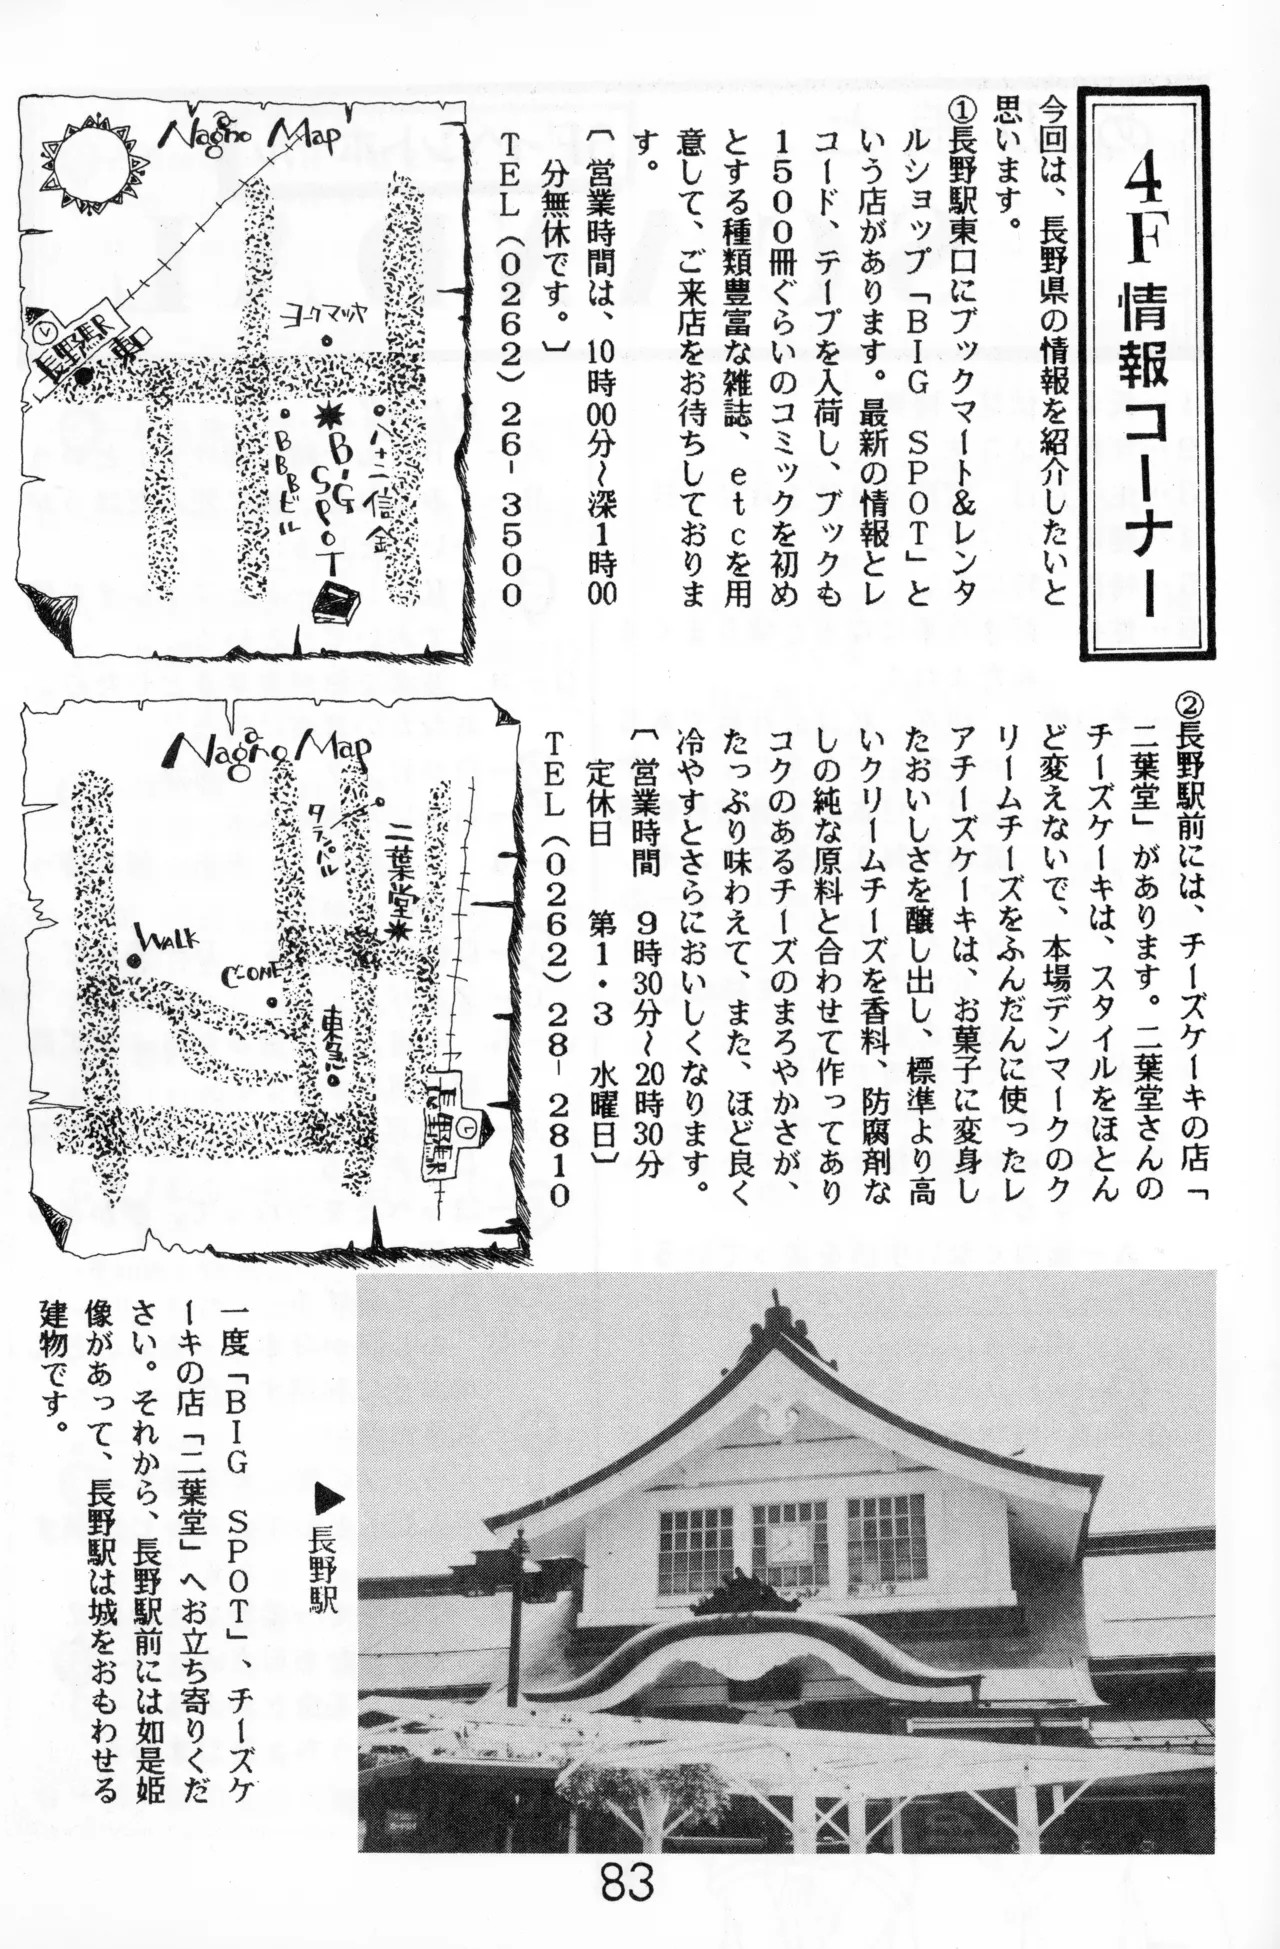 4F情報コーナー
今回は、長野県の情報を紹介したいと
思います。
①長野駅東口にブックマート&レンタ
ルショップ「BIG SPOT」と
いう店があります。最新の情報とレ
コード、テープを入荷し、ブックも
1500冊ぐらいのコミックを初め
とする種類豊富な雑誌、etcを用
意して、ご来店をお待ちしておりま
す。
〔営業時間は、10時00分〜深1時00
分無休です。〕
TEL(0262)26-3500
Nagano Map
長野駅
東口
ヨークマツヤ
八十二信金
BIG SPOT
BBBビル
②長野駅前には、チーズケーキの店「
二葉堂」があります。二葉堂さんの
チーズケーキは、スタイルをほとん
ど変えないで、本場デンマークのク
リームチーズをふんだんに使ったレ
アチーズケーキは、お菓子に変身し
たおいしさを醸し出し、標準より高
いクリームチーズを香料、防腐剤な
しの純な原料と合わせて作ってあり
コクのあるチーズのまろやかさが、
たっぷり味わえて、また、ほど良く
冷やすとさらにおいしくなります。
〔営業時間 9時30分〜20時30分
定休日 第1・3 水曜日〕
TEL(0262)28-2810
Nagano Map
二葉堂
WALK
東急
長野駅
▶長野駅
一度「BIG SPOT」、チーズケ
ーキの店「二葉堂」へお立ち寄りくだ
さい。それから、長野駅前には如是姫
像があって、長野駅は城をおもわせる
建物です。
83